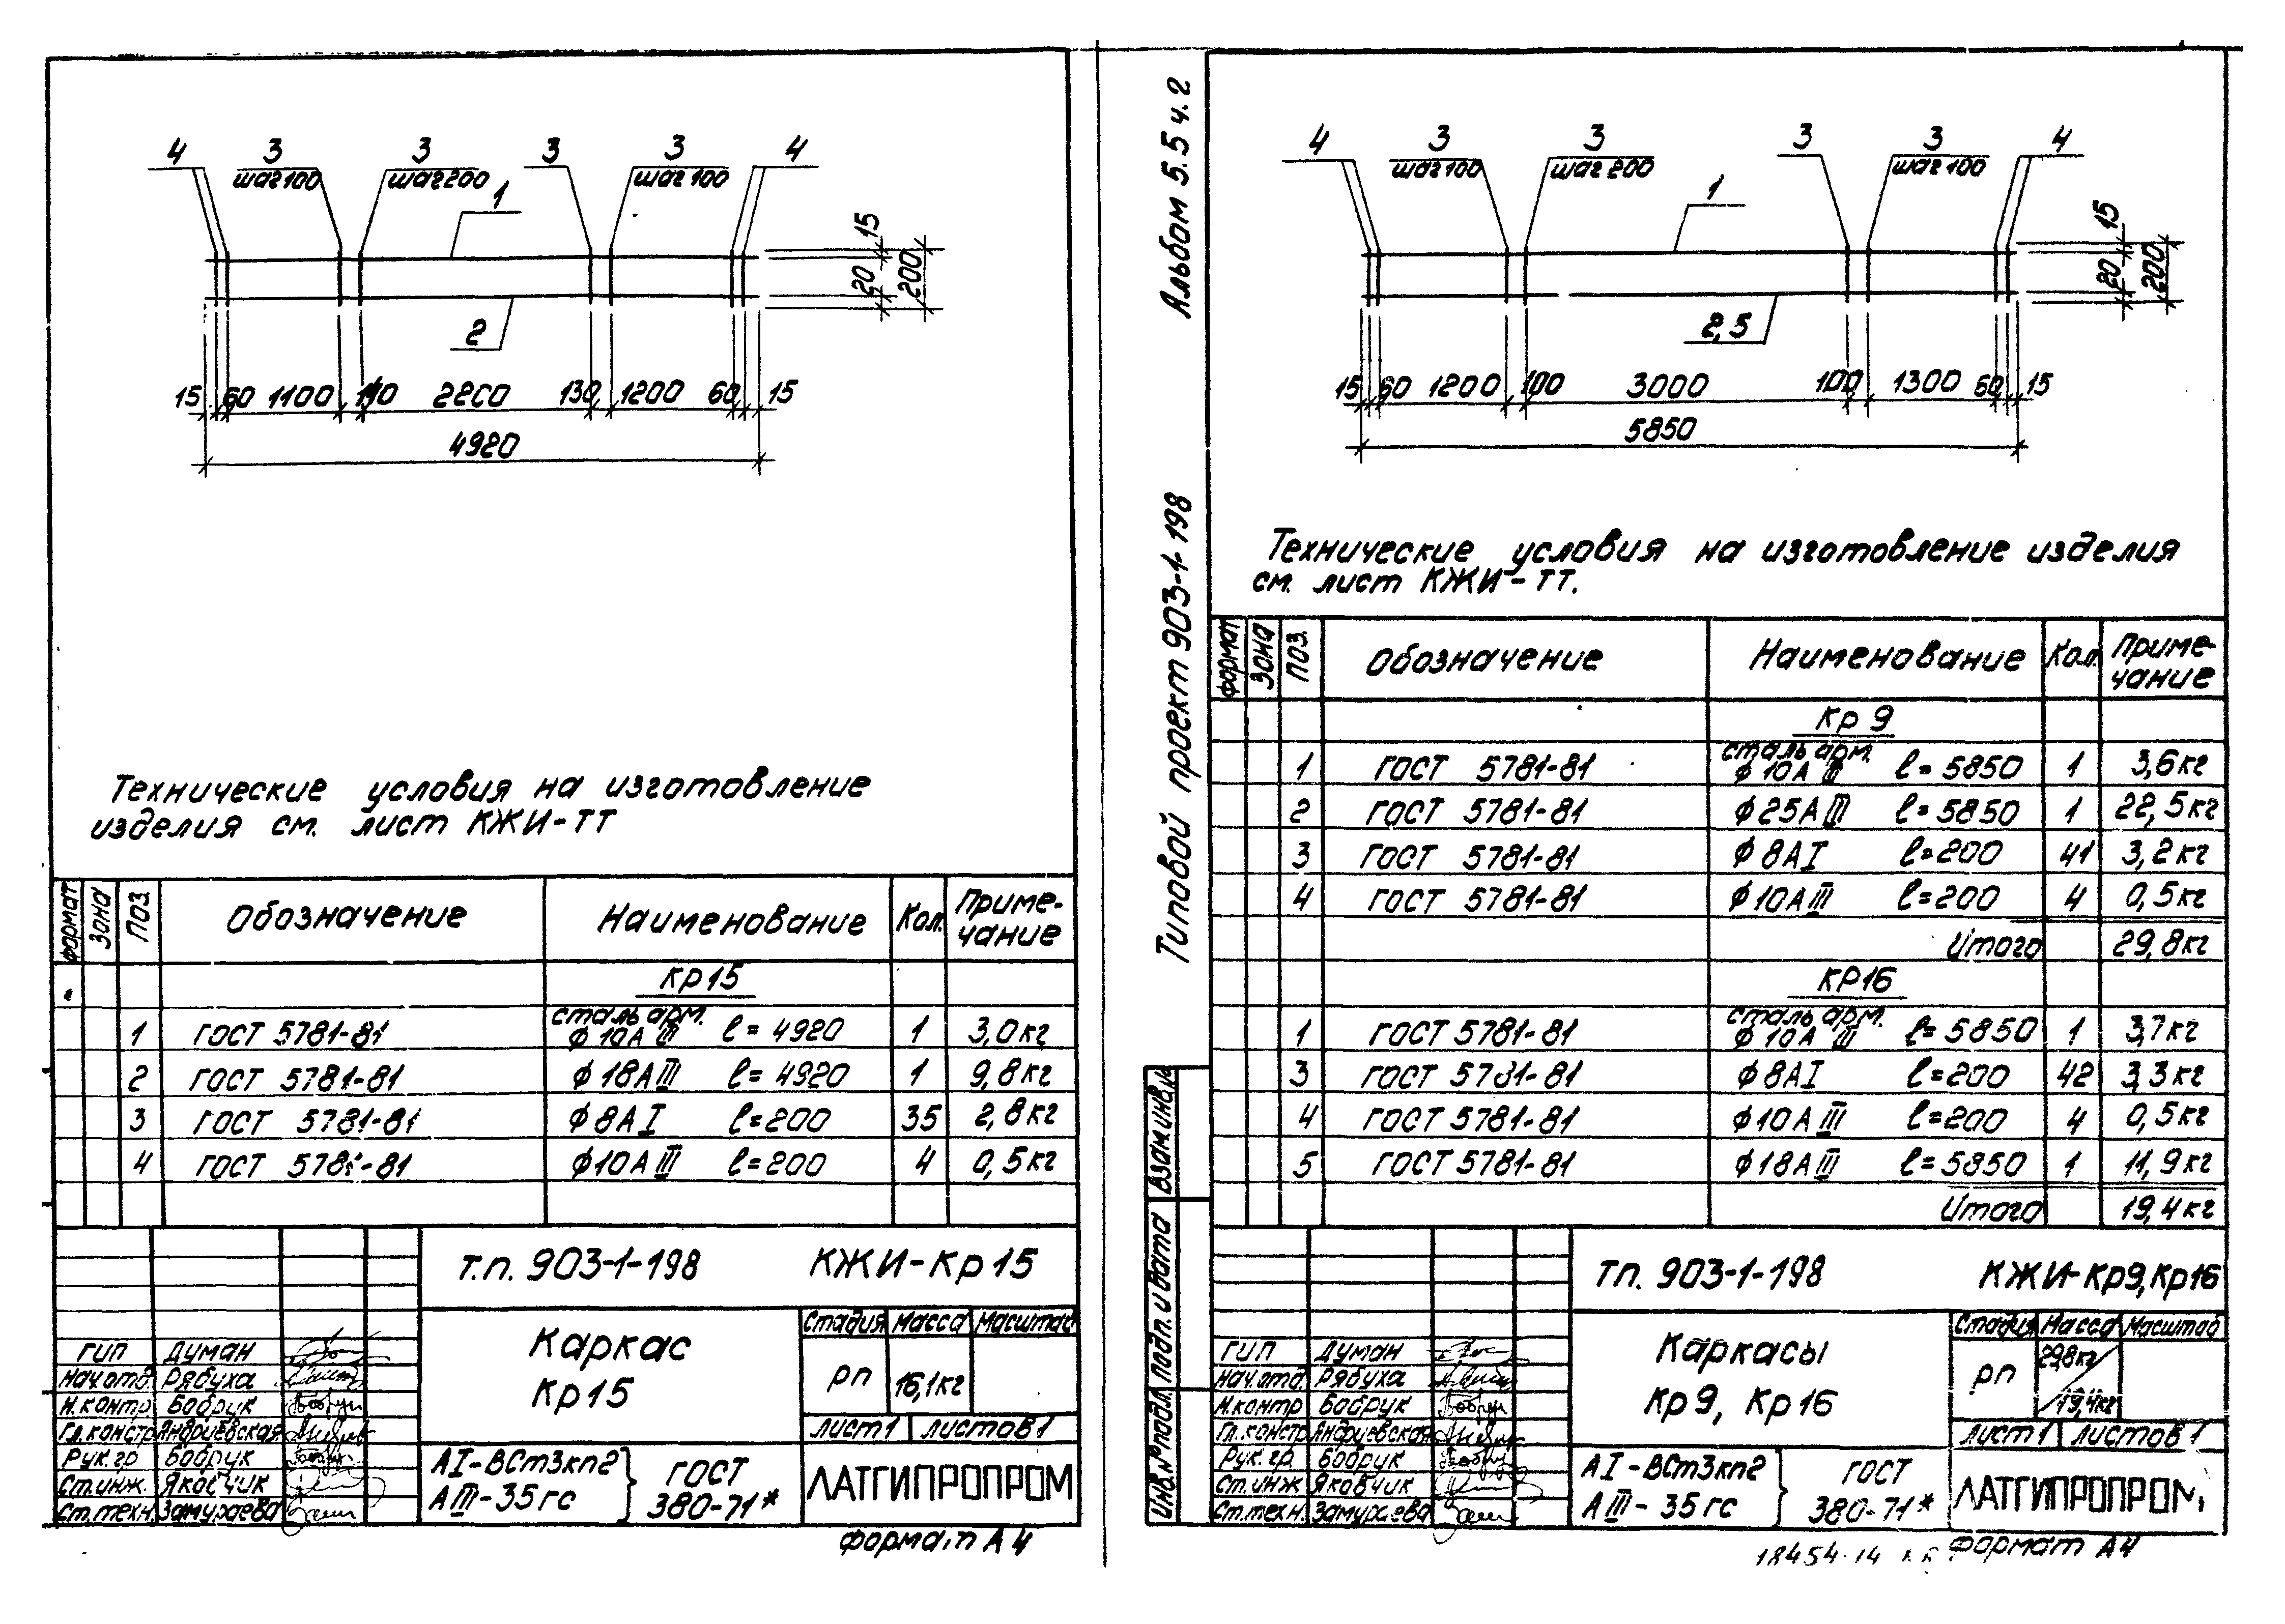 4
3
шаг 100
3
шаг 200
1
3
3
шаг 100
4
15
20
200
2
15 60 1100 2200 130 1200 60 15
4920
Технические условия на изготовление
изделия см. лист КЖИ-ТТ
формат Зона Поз. Обозначение Наименование Кол. Приме-
чание
Кр15
сталь арм.
1 ГОСТ 5781-81 ϕ10АIII ℓ=4920 1 3,0кг
2 ГОСТ 5781-81 ϕ18АIII ℓ=4920 1 9,8кг
3 ГОСТ 5781-81 ϕ8АI ℓ=200 35 2,8кг
4 ГОСТ 5781-81 ϕ10АIII ℓ=200 4 0,5кг
т.п. 903-1-198 КЖИ-Кр15
Каркас
Кр15
Стадия Масса Масштаб
рп 16,1кг
лист1 листов1
ГИП Думан
Нач.отд. Рябуха
Н.контр Бобрук
Гл.констр Андриевская
Рук.гр Бобрук
Ст.инж. Яковчик
Ст.техн. Замураева
АI-ВСт3кп2
АIII-35гс
ГОСТ
380-71*
ЛАТГИПРОПРОМ
формат А4
Альбом 5.5 ч.2
Типовой проект 903-1-198
4
3
шаг 100
3
шаг 200
1
3
3
шаг 100
4
15
20
200
2,5
15 60 1200 100 3000 100 1300 60 15
5850
Технические условия на изготовление изделия
см. лист КЖИ-ТТ.
формат Зона Поз. Обозначение Наименование Кол. Приме-
чание
Кр 9
сталь арм.
1 ГОСТ 5781-81 ϕ10АIII ℓ=5850 1 3,6кг
2 ГОСТ 5781-81 ϕ25АIII ℓ=5850 1 22,5кг
3 ГОСТ 5781-81 ϕ8АI ℓ=200 41 3,2кг
4 ГОСТ 5781-81 ϕ10АIII ℓ=200 4 0,5кг
Итого 29,8кг
КР16
сталь арм.
1 ГОСТ 5781-81 ϕ10АIII ℓ=5850 1 3,7кг
3 ГОСТ 5781-81 ϕ8АI ℓ=200 42 3,3кг
4 ГОСТ 5781-81 ϕ10АIII ℓ=200 4 0,5кг
5 ГОСТ 5781-81 ϕ18АIII ℓ=5850 1 11,9кг
Итого 19,4кг
Взам.инв.№
Подп. и дата
Инв.№подл.
тп. 903-1-198 КЖИ-Кр9,Кр16
Каркасы
Кр9, Кр16
Стадия Масса Масштаб
рп 29,8кг
19,4кг
лист1 листов1
ГИП Думан
Нач.отд Рябуха
Н.контр Бобрук
Гл.констр Андриевская
Рук.гр. Бобрук
Ст.инж Яковчик
Ст.техн. Замураева
АI-ВСт3кп2
АIII-35гс
ГОСТ
380-71*
ЛАТГИПРОПРОМ
18454-14 формат А4